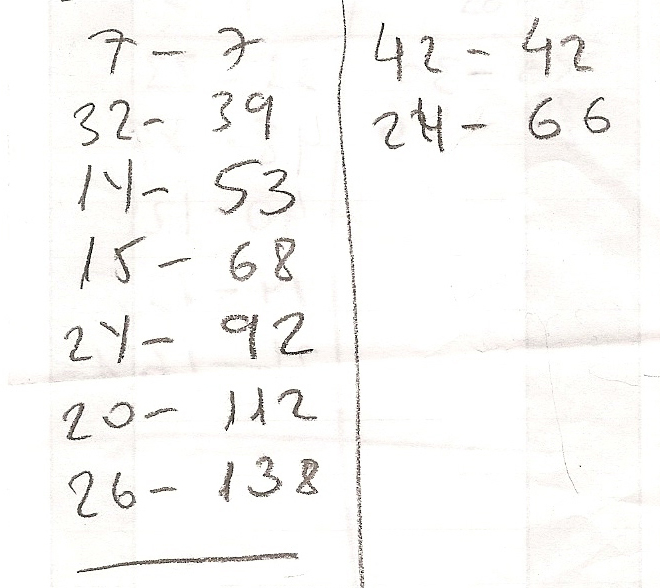 7 - 7
32 - 39
14 - 53
15 - 68
24 - 92
20 - 112
26 - 138
42 - 42
24 - 66